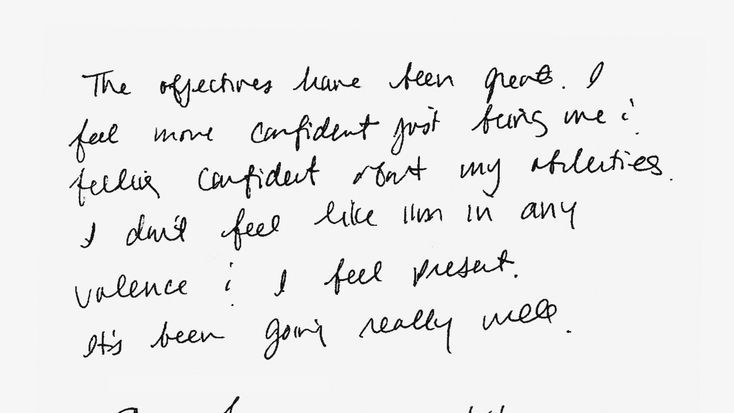 The objectives have been great. I
feel more confident just being me &
feeling confident about my abilities.
I don't feel like I'm in any
valence & I feel present.
It's been going really well.